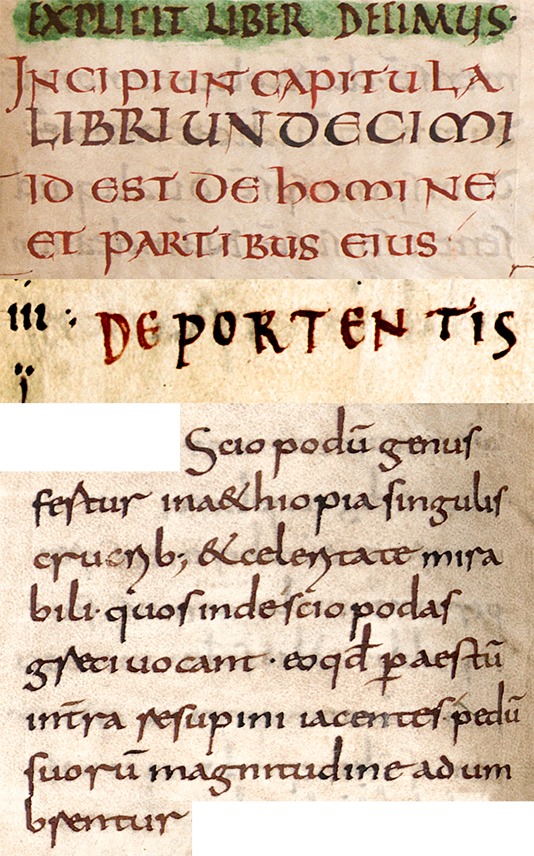 EXPLICIT LIBER DECIMUS·
INCIPIUNT CAPITULA
LIBRI UNDECIMI
ID EST DE hOMINE
ET PARTIBUS EIUS
iii : DE PORTENTIS
ij
Scio podū genus
fertur in a&hiopia singulis
cruribꝫ &celeritate mira
bili· quos inde scio podas
greci uocant· eo qđ ꝑ aestū
in tr̄a resupini iacentes pedū
suorū magnitudine adum
brentur